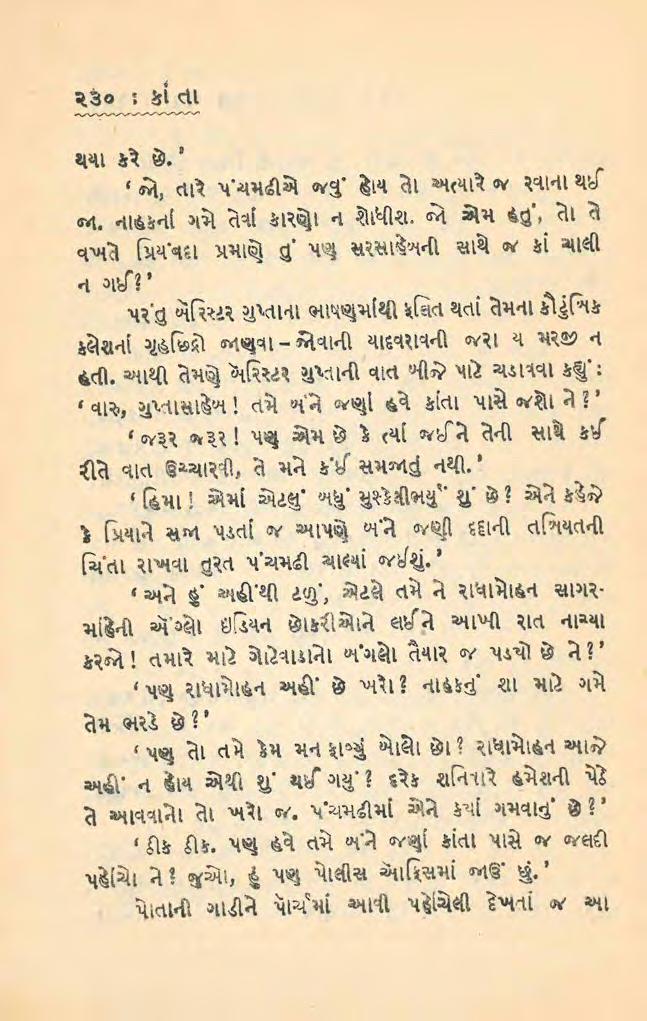 ૨૩૦ : કાંતા
થયા કરે છે.’
‘ જો, તારે પંચમઢીએ જવું હોય તો અત્યારે જ રવાના થઈ
જા. નાહકનાં ગમે તેવાં કારણો ન શોધીશ. જો એમ હતું, તો તે
વખતે પ્રિયંવદા પ્રમાણે તું પણ સરસાહેબની સાથે જ કાં ચાલી
ન ગઈ?’
પરંતુ બૅરિસ્ટર ગુપ્તાના ભાષણમાંથી ફલિત થતાં તેમના કૌટુંબિક
કલેશનાં ગૃહછિદ્રો જાણવા – જોવાની યાદવરાવની જરા ય મરજી ન
હતી. આથી તેમણે બૅરિસ્ટર ગુપ્તાની વાત બીજે પાટે ચડાવવા કહ્યું :
‘ વારુ, ગુપ્તાસાહેબ ! તમે બંને જણાં હવે કાંતા પાસે જશો ને ?’
‘ જરૂર જરૂર ! પણ એમ છે કે ત્યાં જઈને તેની સાથે કઈ
રીતે વાત ઉચ્ચારવી, તે મને કંઈ સમજાતું નથી.’
‘ હિમા ! એમાં એટલું બધું મુશ્કેલીભર્યું શું છે ? એને કહેજે
કે પ્રિયાને સજા પડતાં જ આપણે બંને જણી દદ્દાની તબિયતની
ચિંતા રાખવા તુરત પંચમઢી ચાલ્યાં જઈશું.’
‘ અને હું અહીંથી ટળું, એટલે તમે ને રાધામોહન સાગર-
માંહેની ઍંગ્લો ઇંડિયન છોકરીઓને લઈને આખી રાત નાચ્યા
કરજો ! તમારે માટે ગોટેવાડાનો બંગલો તૈયાર જ પડચો છે ને ?’
‘ પણ રાધામોહન અહીં છે ખરો? નાહકનું શા માટે ગમે
તેમ ભરડે છે ?’
‘ પણ તો તમે કેમ મન ફાવ્યું બોલો છો ? રાધામોહન આજે
અહીં ન હોય એથી શું થઈ ગયું ? દરેક શનિવારે હમેશની પેઠે
તે આવવાનો તો ખરો જ. પંચમઢીમાં એને કયાં ગમવાનું છે ?’
‘ ઠીક ઠીક. પણ હવે તમે બંને જણાં કાંતા પાસે જ જલદી
પહોંચો ને ? જુઓ, હું પણ પોલીસ ઑફિસમાં જાઉં છું.’
પોતાની ગાડીને પૉર્ચમાં આવી પહોંચેલી દેખતાં જ આ